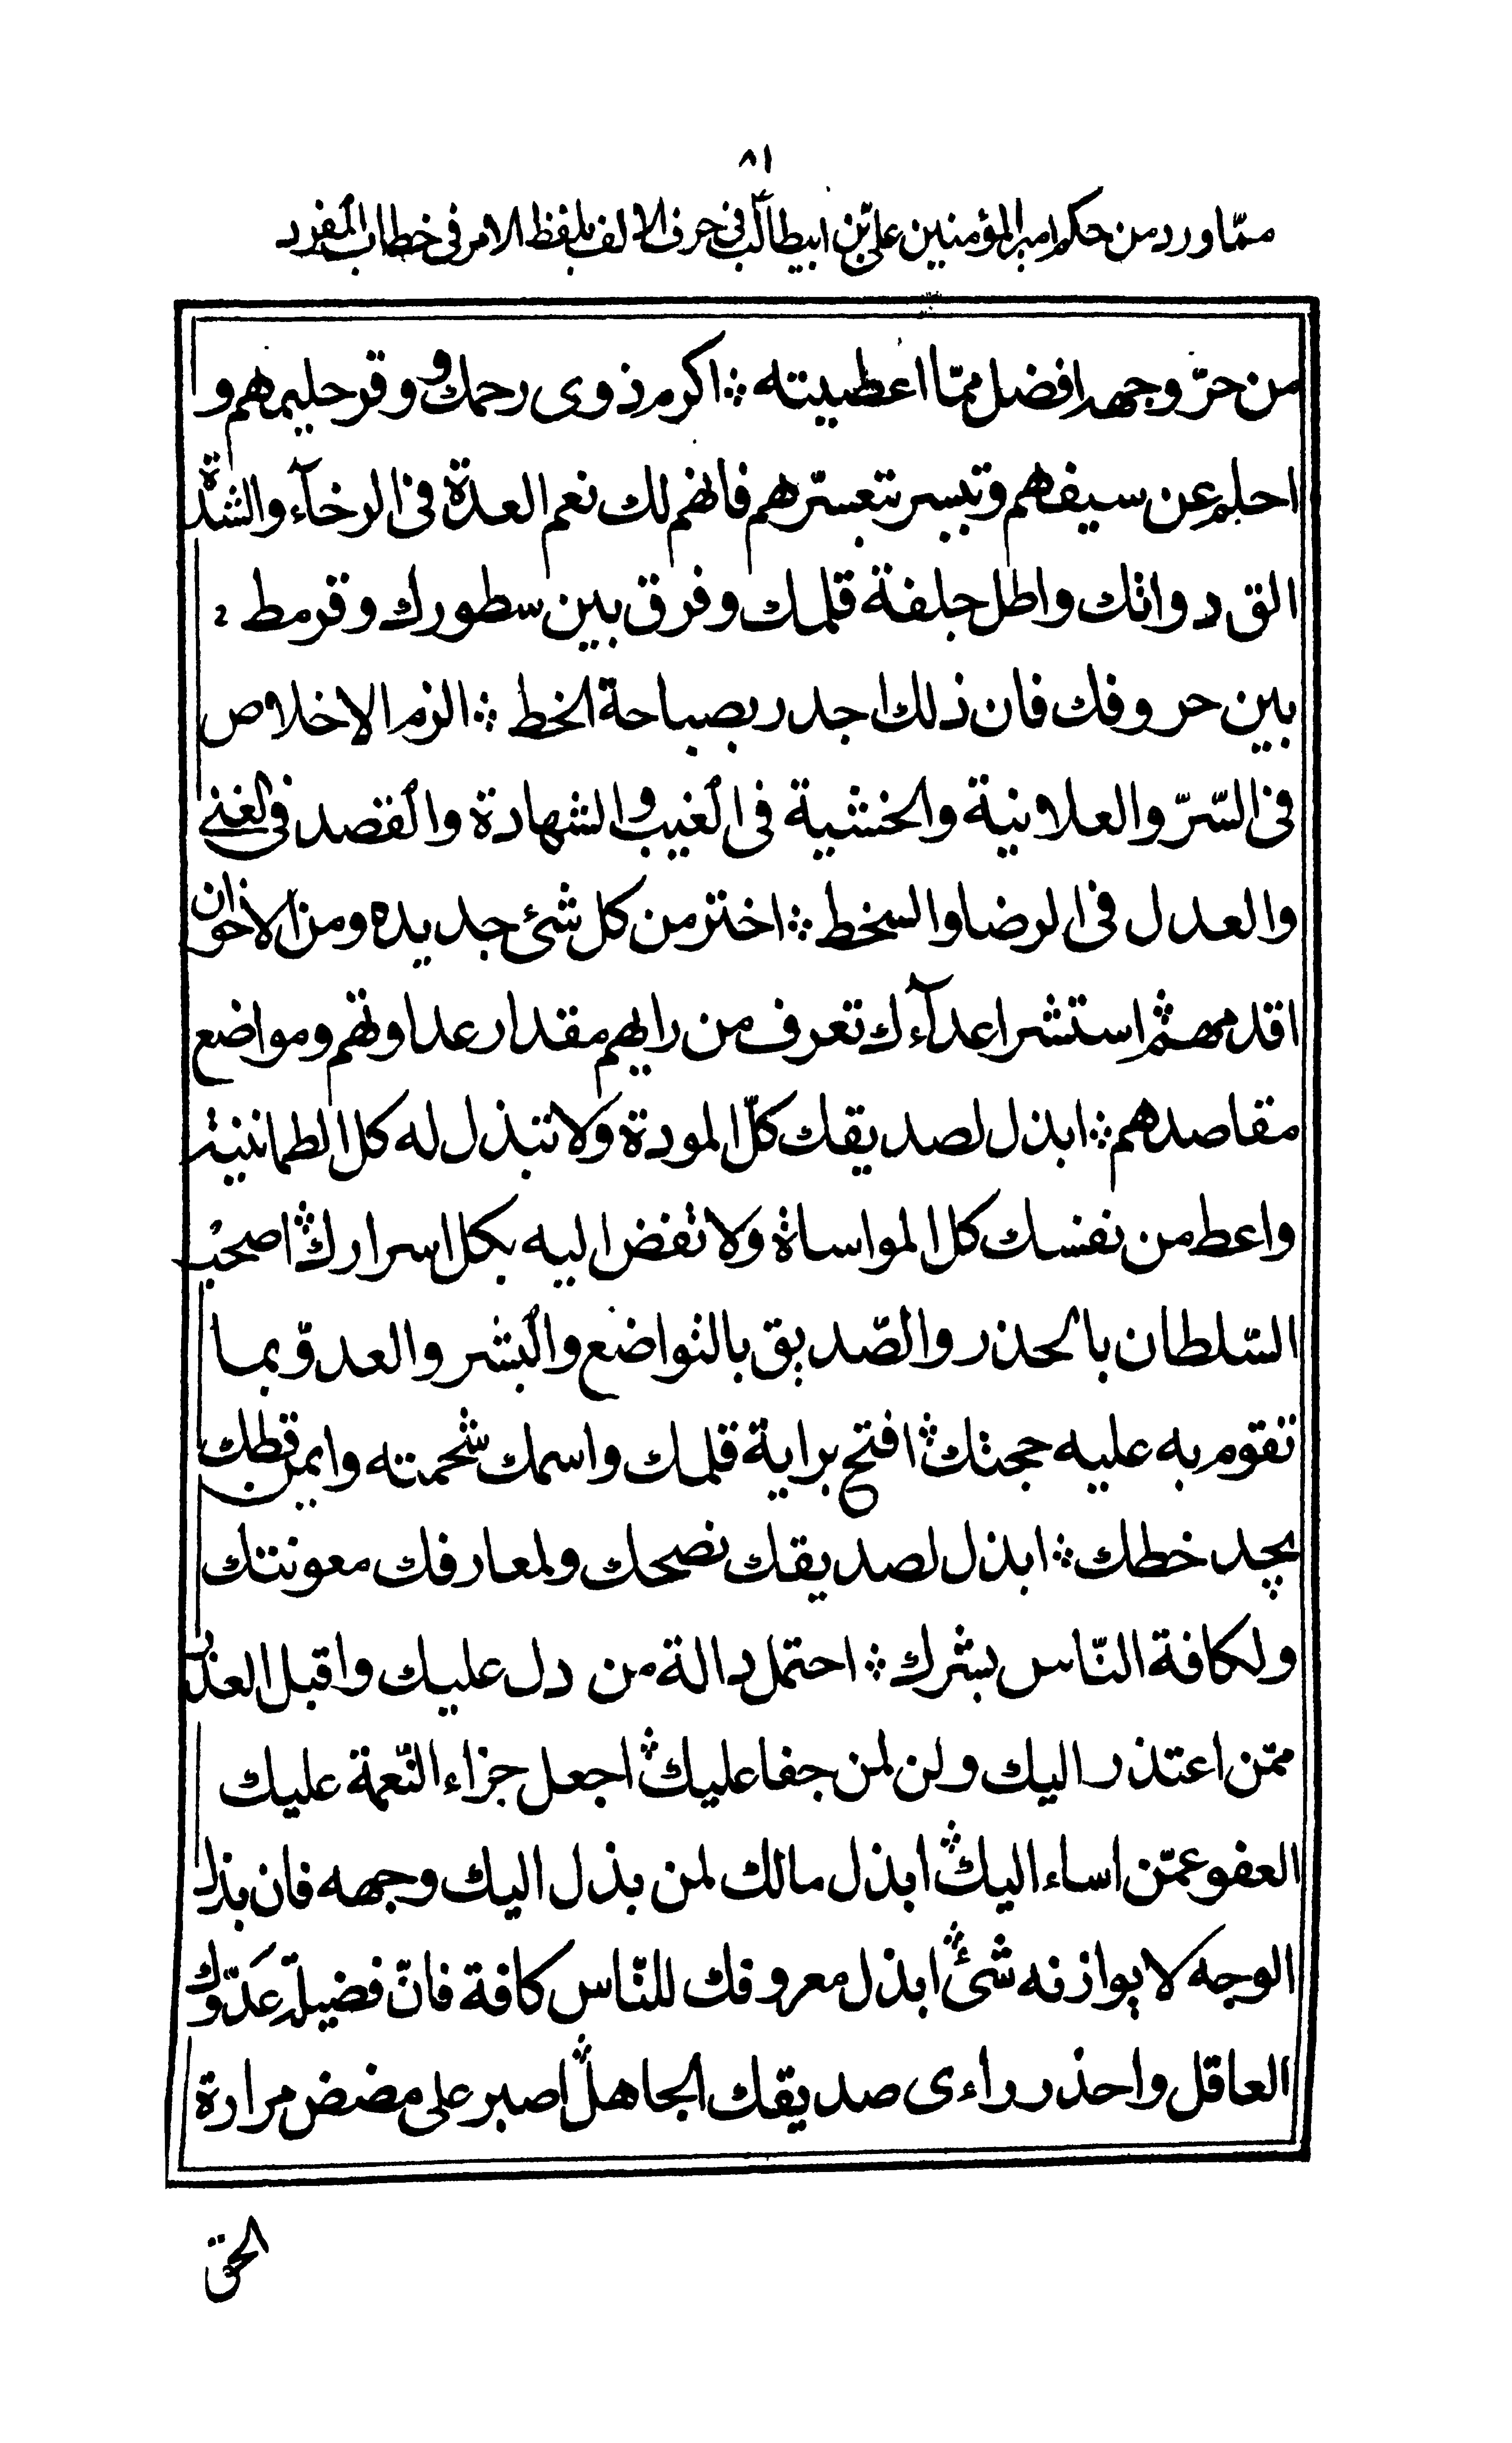 ٨١
ممّا ورد من حكم امير المؤمنين علىّ بن ابيطالب فى حرف الالف بلفظ الامر فى خطاب المفرد
من حرّ وجهه افضل ممّا اعطيته ∴ اكرم ذوى رحمك و وقر حليمهم و
احلم عن سيفهم و تيسر بتعسّرهم فانهم لك نعم العدة فى الرخآء والشدة
الق دواتك واطل جلفة قلمك و فرق بين سطورك و قرمط
بين حروفك فان ذلك اجدر بصباحة الخط ∴ الزم الاخلاص
فى السّرّ والعلانية والخشية فى الغيب والشهادة والقصد فى الغنى
والعدل فى الرضا والسخط ∴ اختر من كل شئ جديده ومن الاخوان
اقدمهم ∴ استشر اعدآءك تعرف من رايهم مقدار عداوتهم ومواضع
مقاصدهم ∴ ابذل لصديقك كلّ المودة ولا تبذل له كل الطمانينة
واعط من نفسك كل المواساة ولا تفض اليه بكل اسرارك ∴ اصحب
السّلطان بالحذر والصّديق بالتواضع والبشر والعدوّ بما
تقوم به عليه حجتك ∴ افتح براية قلمك واسمك شحمته وايمن قطك
يجد خطك ∴ ابذل لصديقك نصحك ولمعارفك معونتك
ولكافة النّاس بشرك ∴ احتمل دالة من دل عليك واقبل العذر
ممّن اعتذر اليك ولن لمن جفا عليك ∴ اجعل جزاء النّعمة عليك
العفو عمّن اساء اليك ∴ ابذل مالك لمن بذل اليك وجهه فان بذل
الوجه لا يوازنه شئ ∴ ابذل معروفك للنّاس كافة فانّ فضيلة عدّوك
العاقل واحذر راءى صديقك الجاهل ∴ اصبر على مضض مرارة
الحق